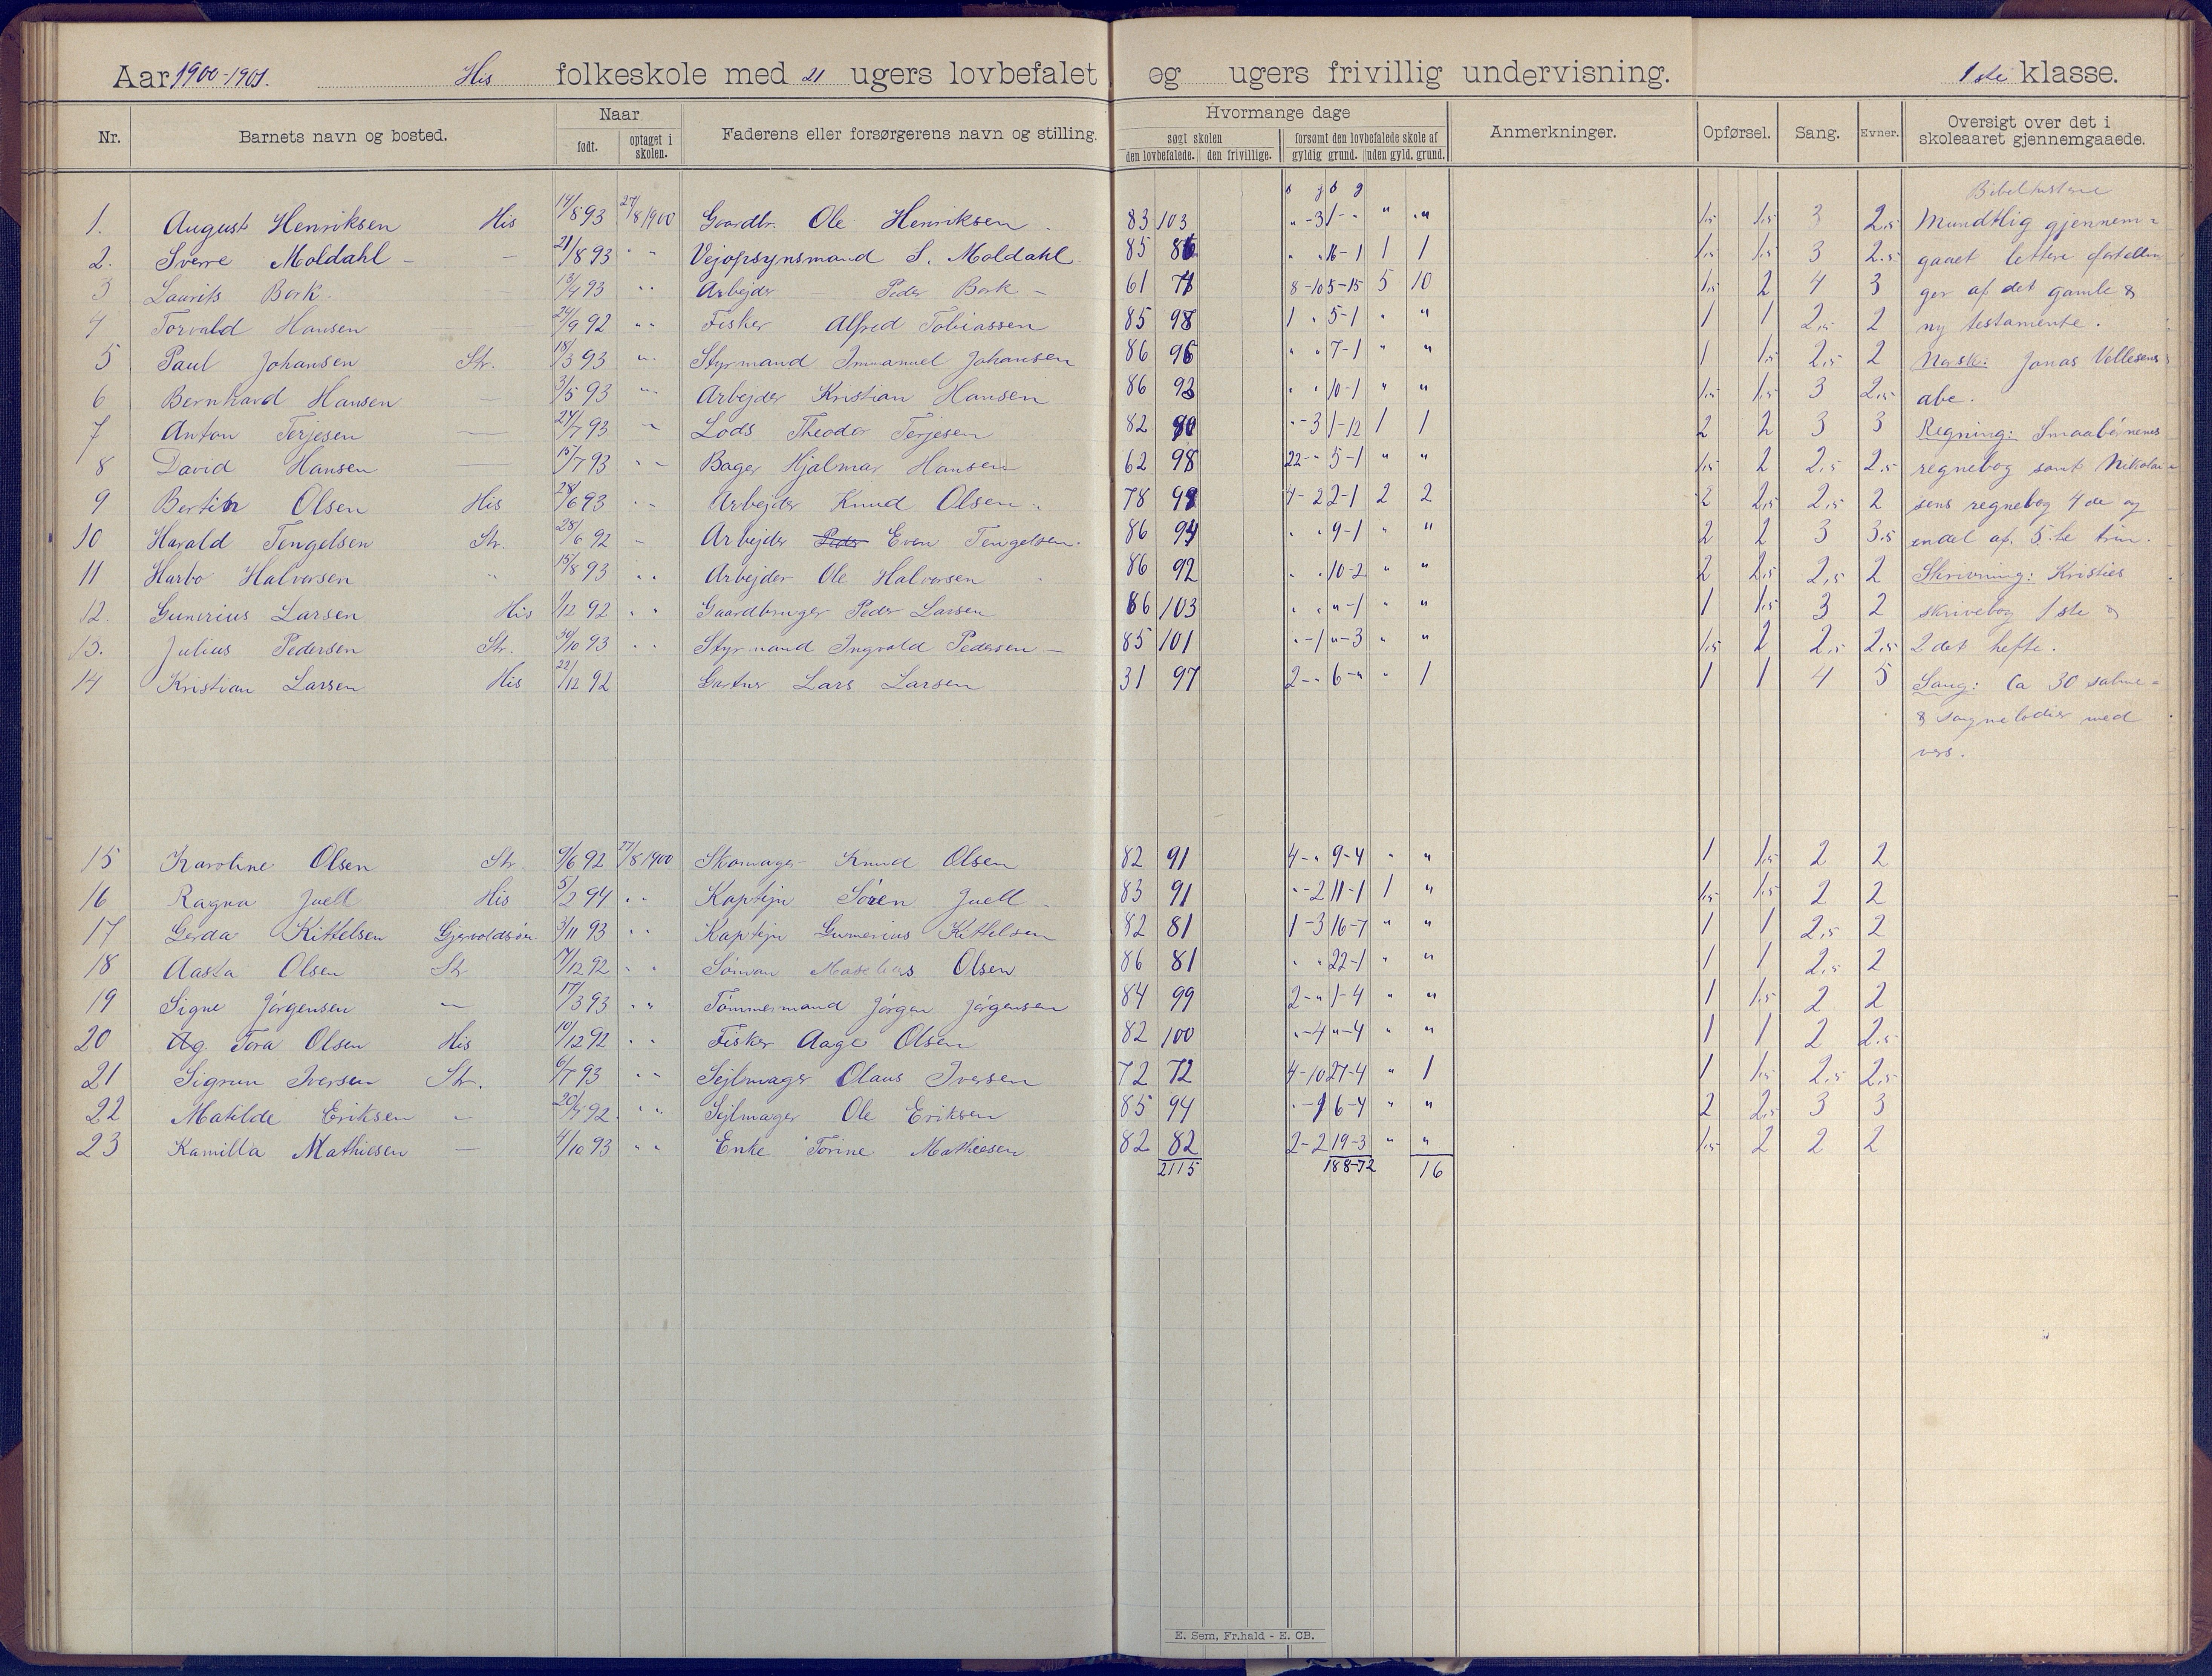 Aar 1900-1901. His folkeskole med 21 ugers lovbefalet og ugers frivillig undervisning. 1ste klasse.
Nr. Barnets navn og bosted. Naar født. optaget i skolen. Faderens eller forsørgerens navn og stilling. Hvormange dage søgt skolen den lovbefalede. den frivillige. forsømt den lovbefalede skole af gyldig grund. uden gyld. grund. Anmerkninger. Opførsel. Sang. Evner. Oversigt over det i skoleaaret gjennemgaaede.
1. August Henriksen His 14/8 93 27/8 1900 Gaardbr. Ole Henriksen 83 103 " -3 1- " " " 1,5 1,5 3 2,5
2. Sverre Moldahl - - 21/8 93 " " Vejopsynsmand S. Moldahl 85 86 " " 16-1 1 1 1,5 1,5 3 2,5
3 Laurits Bork. 13/4 93 " " Arbejder Peder Bork - 61 71 8-10 5-15 5 10 1,5 2 4 3
4 Torvald Hansen 24/9 92 " " Fisker Alfred Tobiassen 85 98 1 " 5-1 " " 1 1 2,5 2
5 Paul Johansen Str. 18/3 93 " Styrmand Immanuel Johansen 86 96 " " 7-1 " " 1 1,5 2,5 2
6 Bernhard Hansen - 3/5 93 " Arbejder Kristian Hansen 86 93 " " 10-1 " " 1,5 1,5 3 2,5
7 Anton Terjesen - 24/7 93 " Lods Theodor Terjesen 82 90 " -3 1-12 1 1 2 2 3 3
8 David Hansen - 15/7 93 " " Bager Hjalmar Hansen 62 98 22- " 5-1 " " 1,5 2 2,5 2,5
9 Bertin Olsen His 28/6 93 " " Arbejder Knud Olsen 78 98 4-2 2-1 2 2 2 2,5 2,5 2
10 Harald Tengelsen Str. 28/6 92 - Arbejder Peder Even Tengelsen. 86 94 " " 9-1 " " 2 2 3 3,5
11 Harbo Halvorsen " 15/8 93 " " Arbejder Ole Halvorsen 86 92 " " 10-2 " " 2 2,5 2,5 2
12. Gunerius Larsen His 1/12 92 " " Gaardbruger Peder Larsen 86 103 " " " -1 " " 1 1,5 3 2
13. Julius Pedersen Str. 30/10 93 " " Styrmand Ingvald Pedersen - 85 101 " -1 " -3 " " 1,5 2 2,5 2,5
14 Kristian Larsen His 22/12 92 Gartner Lars Larsen 31 97 2- " 6- " " 1 1 1 4 5
Bibelhistorie
Mundtlig gjennem-
gaaet lettere fortællin
ger af det gamle &
ny testamente.
Norsk: Jonas Vellesens
abc.
Regning: Smaabørnenes
regnebog samt Nikolai-
sens regnebog 4de og
endel af 5.te trin.
Skrivning: Kristies
skrivebog 1ste &
2det hefte.
Sang: Ca 30 salme-
& sangmelodier med
vers.
15 Karoline Olsen Str. 9/6 92 27/8 1900 Skomager Knud Olsen 82 91 4- " 9-4 " " 1 1,5 2 2
16 Ragna Juell His 5/2 94 " " Kaptejn Søren Juell - 83 91 " -2 11-1 1 " 1,5 1,5 2 2
17 Gerda Kittelsen Gjervoldsøen. 3/11 93 " " Kaptejn Gumerius Kittelsen 82 81 1-3 16-7 " " 1 1 2,5 2
18 Aasta Olsen Str 7/12 92 " " Søman Olsen 86 81 " " 22-1 " " 1 1 2,5 2
19 Signe Jörgensen - 17/3 93 " " Tömmermand Jörgen Jörgensen 84 99 2- " 1-4 " " 1 1,5 2 2
20 Ag Tora Olsen His 10/12 92 " " Fisker Aage Olsen 82 100 " -4 " -4 " " 1 1 2 2,5
21 Sigrun Iversen Str. 6/7 93 " " Sejlmager Olaus Iversen 72 72 4-10 27-4 " 1 1 1,5 2,5 2,5
22 Matilde Eriksen " 20/7 92. " " Sejlmager Ole Eriksen 85 94 " -1 6-4 " " 2 2,5 3 3
23 Kamilla Mathiesen - 4/10 93 " " Enke Torine Mathiesen 82 82 2-2 19-3 " " 1,5 2 2 2
2115 188-72 16
E. Sem, Fr.hald - E. CB.